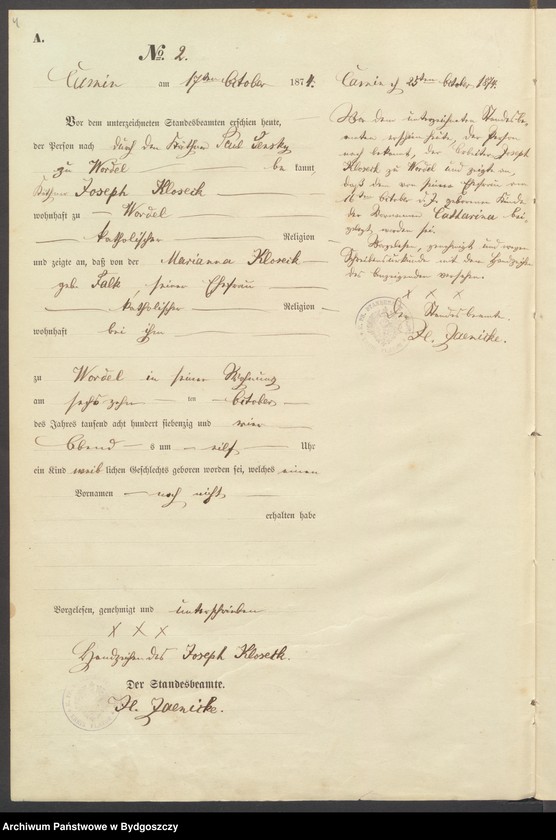 4
A.
No. 2.
Camin am 17ten October 1874.
Vor dem unterzeichneten Standesbeamten erschien heute,
der Person nach durch den Käthner Paul
zu Wordel bekannt,
Joseph Kloseck
wohnhaft zu Wordel
katholischer Religion
und zeigte an, daß von der Marianna Kloseck
geb. Falk, seiner Ehefrau
katholischer Religion
wohnhaft bei ihm
zu Wordel in seiner Wohnung
am sechszehn ten October
des Jahres tausend acht hundert siebenzig und vier
Abend s um eilf Uhr
ein Kind weib lichen Geschlechts geboren worden sei, welches einen
Vornamen noch nicht
erhalten habe
Vorgelesen, genehmigt und unterschrieben
X X X
Handzeichen des Joseph Kloseck.
Der Standesbeamte.
Jaenicke.
Camin, 25ten October 1874.
Vor dem unterzeichneten Standesbe-
amten erschien heute, der Person
nach bekannt, der Arbeiter Joseph
Kloseck zu Wordel und zeigte an,
daß dem von seiner Ehefrau am
16ten October d. J. geborenen Kinde
der Vorname Catharina bei-
gelegt worden sei.
Vorgelesen, genehmigt und wegen
Schreibensunkunde mit dem Handzeichen
des versehen.
X X X
Der Standesbeamte.
Jaenicke.
Archiwum Państwowe w Bydgoszczy